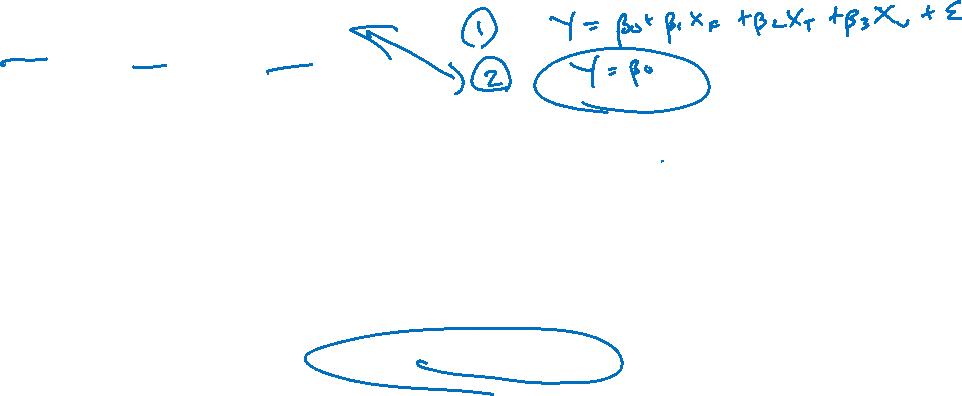 ① Y = β₀ + β₁ X_F + β₂ X_T + β₃ X_v + ε
② Y = β₀